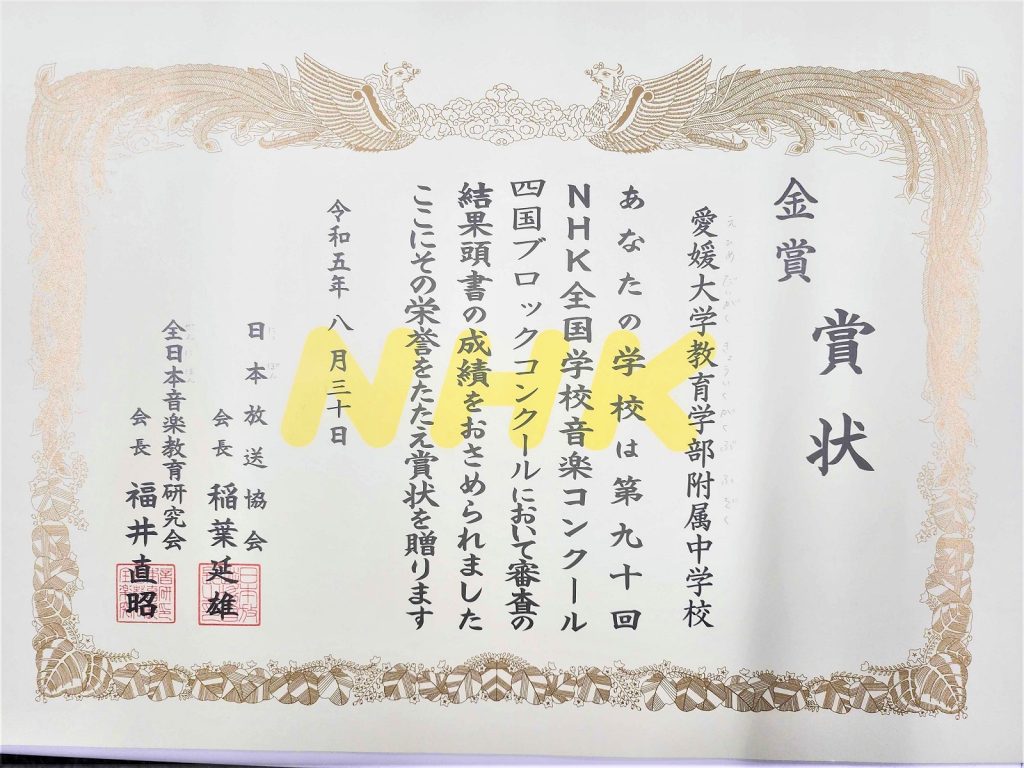 賞状
金賞
愛媛大学教育学部附属中学校
あなたの学校は第九十回
NHK全国学校音楽コンクール
四国ブロックコンクールにおいて審査の
結果頭書の成績をおさめられました
ここにその栄誉をたたえ賞状を贈ります
令和五年 八 月三十日
日本放送協会
会長 稲葉延雄
全日本音楽教育研究会
会長 福井直昭
NHK